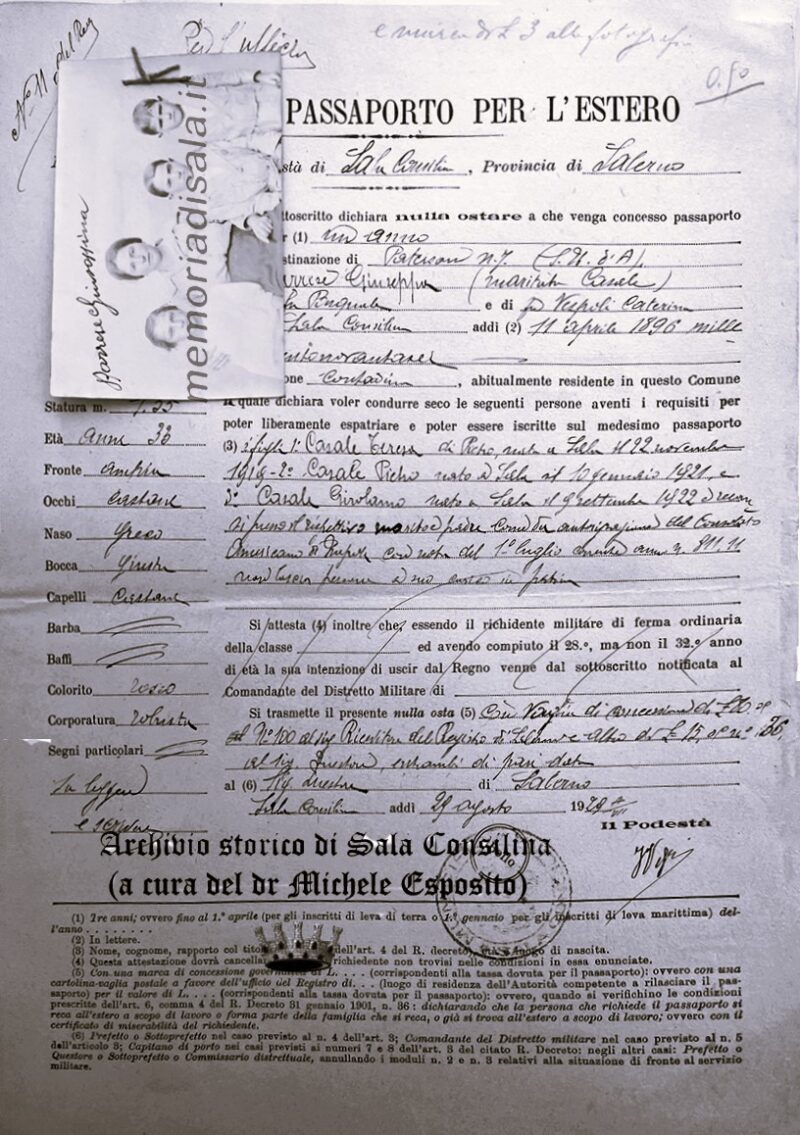 Per l'ufficio
N° 11 del Reg
0.50
PASSAPORTO PER L'ESTERO
stà di Sala Consilina, Provincia di Salerno
ttoscritto dichiara nulla ostare a che venga concesso passaporto
r (1) un anno
stinazione di Paterson N.J. (S.U. d'A).
arrese Giuseppa (maritata Casale)
Pasquale e di Vespoli Caterina
Sala Consilina addì (2) 11 aprile 1896 mille
entonovantasei
one contadina, abitualmente residente in questo Comune
la quale dichiara voler condurre seco le seguenti persone aventi i requisiti per
poter liberamente espatriare e poter essere iscritte sul medesimo passaporto
(3) i figli 1° Casale Teresa di Pietro, nata a Sala il 22 novembre
1919 - 2° Casale Pietro nato a Sala il 10 gennaio 1921 e
3° Casale Girolamo nato a Sala il 9 settembre 1922
si presso il rispettivo marito e padre come da autorizzazione del Consolato
Americano di Napoli con nota del 1° luglio anno n. 811.11
non lascia persone a suo carico in patria
memoriadisala.it
Statura m. 1.55
Età anni 32
Fronte ampia
Occhi castani
Naso greco
Bocca giusta
Capelli castani
Barba
Baffi
Colorito roseo
Corporatura robusta
Segni particolari
Sa leggere
e scrivere
Si attesta (4) inoltre che, essendo il richidente militare di ferma ordinaria
della classe ed avendo compiuto il 28.°, ma non il 32.° anno
di età la sua intenzione di uscir dal Regno venne dal sottoscritto notificata al
Comandante del Distretto Militare di
Si trasmette il presente nulla osta (5) Con Vaglia di concessione di
N° 100 al Sig. Ricevitore del Registro di Salerno e altro di £ 15,
al Sig. Questore, entrambi di pari data
al (6) Sig. Questore di Salerno
Sala Consilina addì 29 agosto 1928
Il Podestà
Archivio storico di Sala Consilina
(a cura del dr Michele Esposito)
(1) Tre anni; ovvero fino al 1.° aprile (per gli inscritti di leva di terra o 1.° gennaio per gli inscritti di leva marittima) del-
l'anno . . . . . . . .
(2) In lettere.
(3) Nome, cognome, rapporto col tito dell'art. 4 del R. decreto, luogo di nascita.
(4) Questa attestazione dovrà cancellar richiedente non trovisi nelle condizioni in essa enunciate.
(5) Con una marca di concessione governativa di L. . . . (corrispondenti alla tassa dovuta per il passaporto): ovvero con una
cartolina-vaglia postale a favore dell'ufficio del Registro di. . . (luogo di residenza dell'Autorità competente a rilasciare il pas-
saporto) per il valore di L. . . . (corrispondenti alla tassa dovuta per il passaporto): ovvero, quando si verifichino le condizioni
prescritte dell'art. 6, comma 4 del R. Decreto 31 gennaio 1901, n. 36: dichiarando che la persona che richiede il passaporto si
reca all'estero a scopo di lavoro o forma parte della famiglia che si reca, o già si trova all'estero a scopo di lavoro; ovvero con il
certificato di miserabilità del richiedente.
(6) Prefetto o Sottoprefetto nel caso previsto al n. 4 dell'art. 3; Comandante del Distretto militare nel caso previsto al n. 5
dell'articolo 3; Capitano di porto nei casi previsti ai numeri 7 e 8 dell'art. 3 del citato R. Decreto: negli altri casi: Prefetto o
Questore o Sottoprefetto o Commissario distrettuale, annullando i moduli n. 2 e n. 3 relativi alla situazione di fronte al servizio
militare.